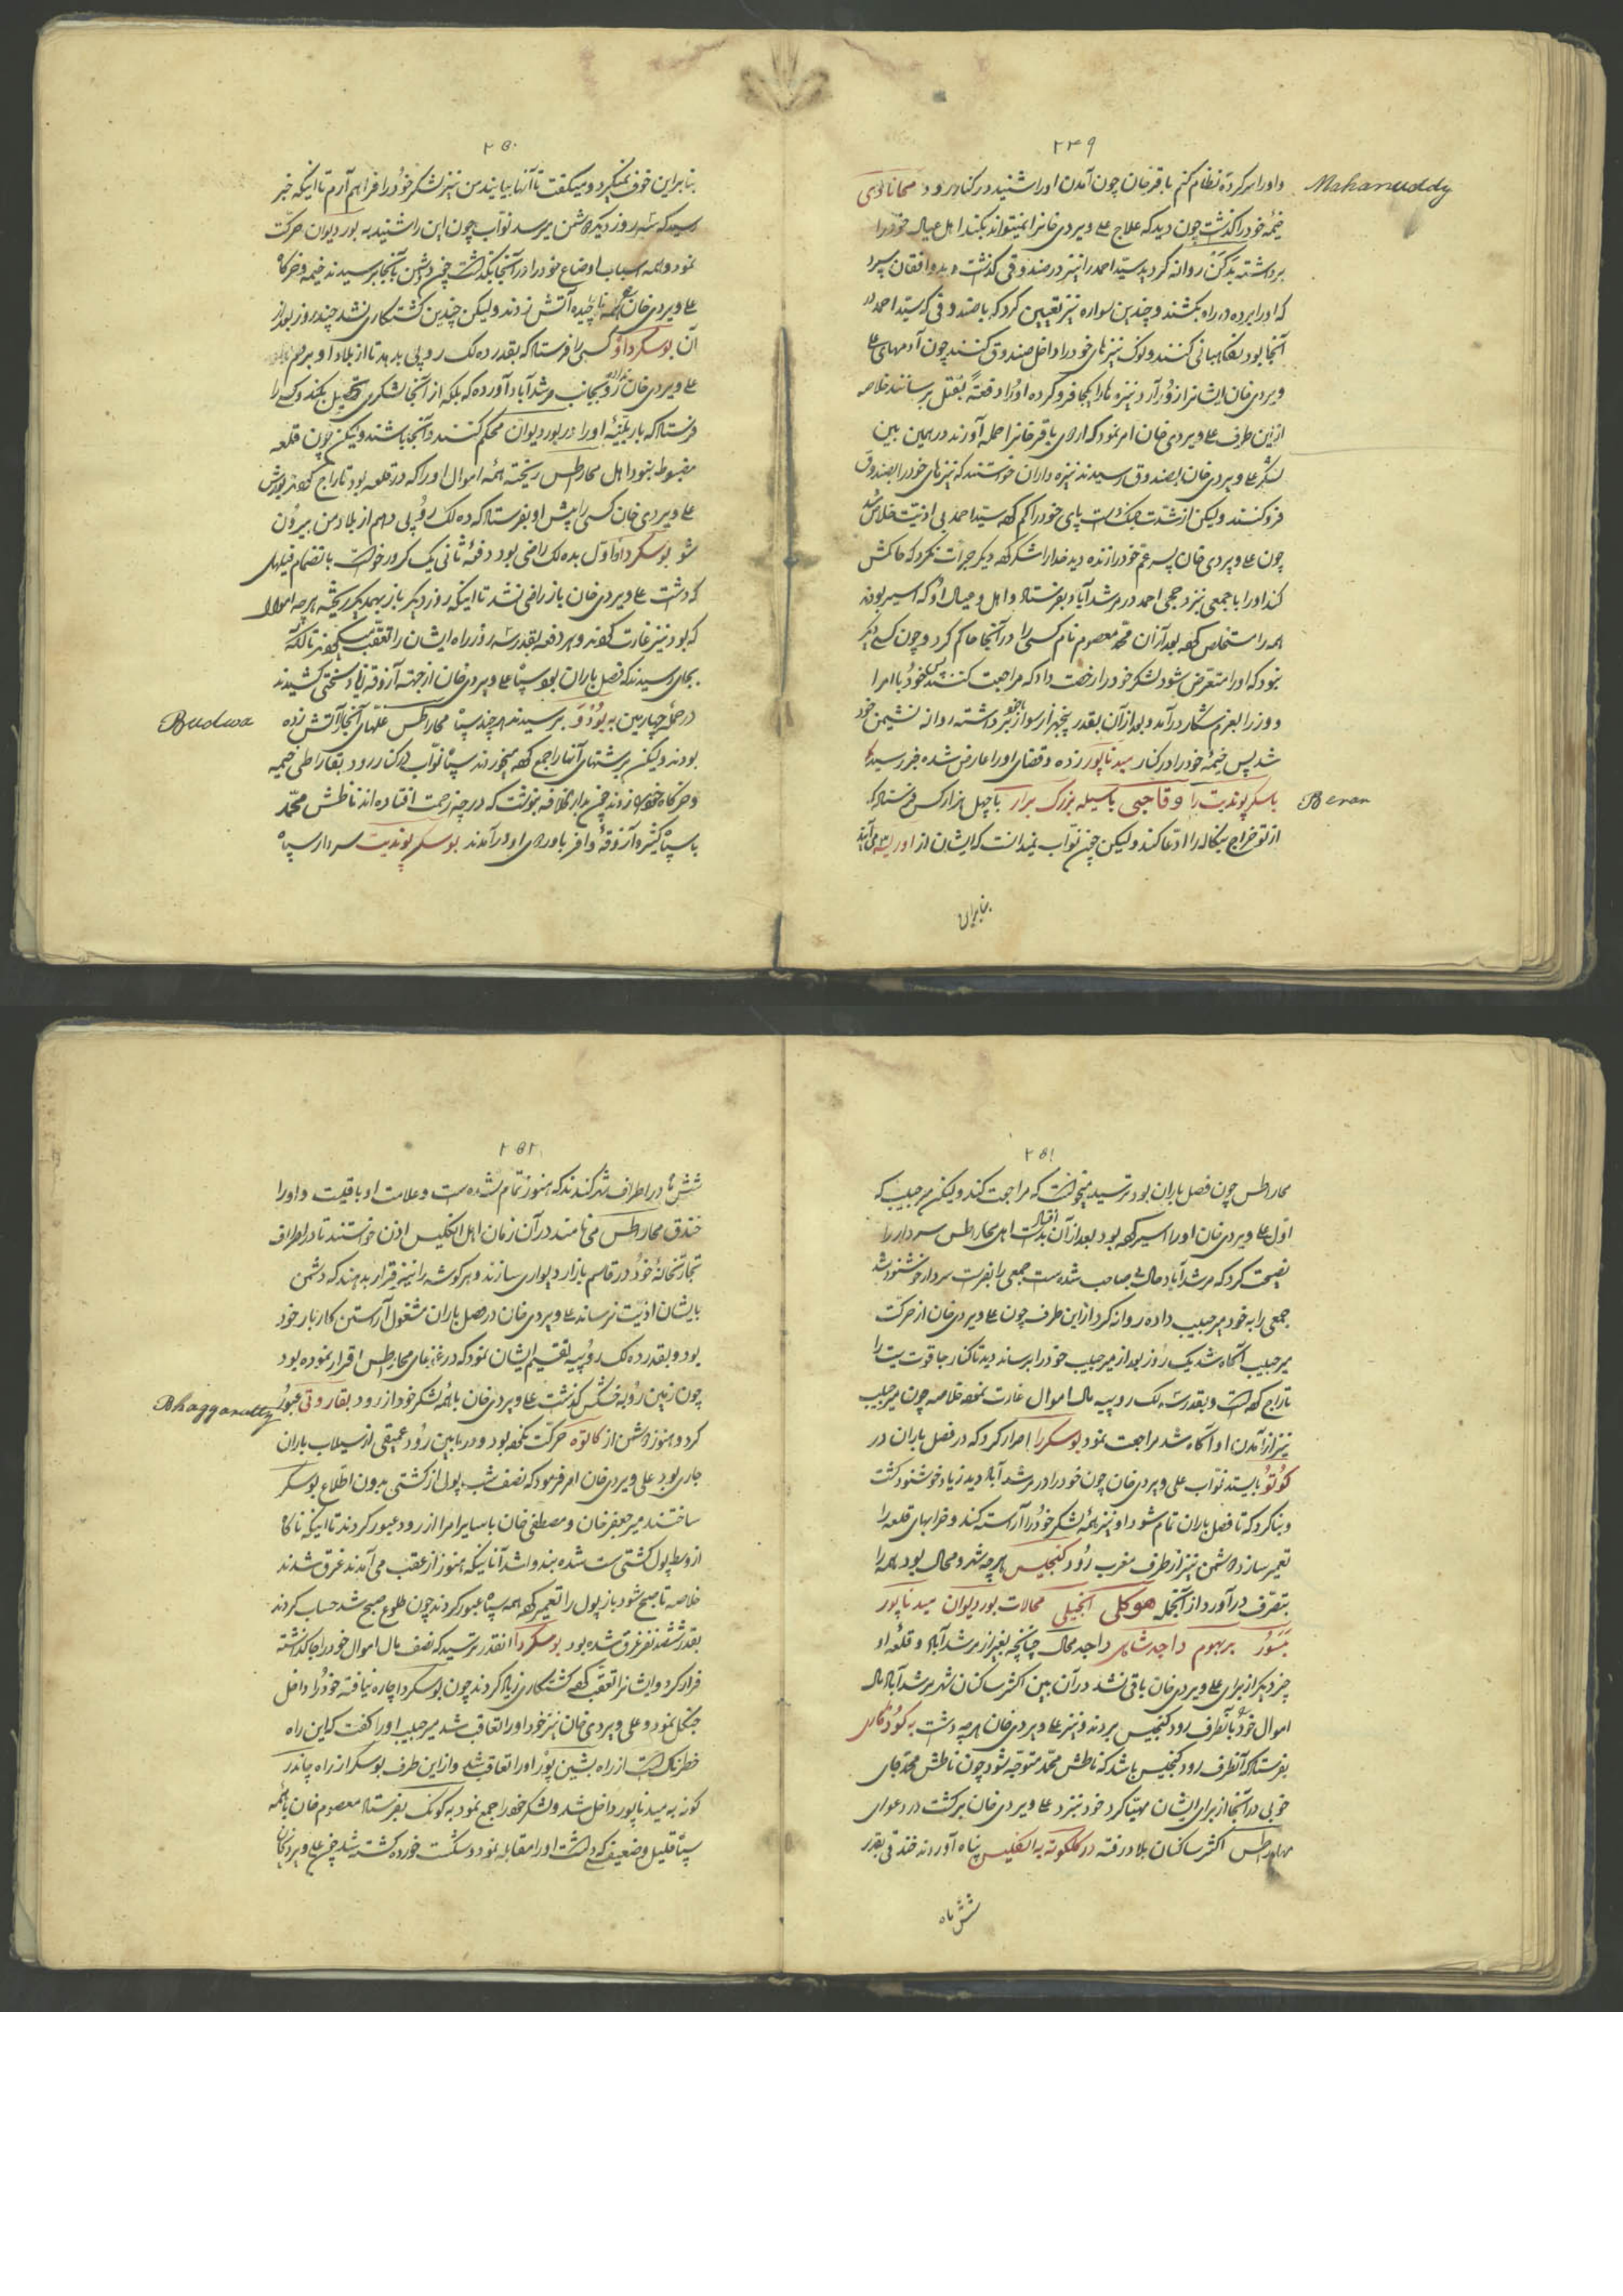 ۲۴۹
و او را هر کرده نظام کنم باقرخان چون آمدن او را شنید در کنار رود مهانادی
Mahanuddy
خیمهٔ خود را گذاشت چون دید که علاج علی ویردی خانرا نمیتواند بکند اهل عیال خود را
برداشته بدکن روانه کردید سید احمد را نیز در صندوقی گذاشت و بدو افغان سپرد
که او را برده در راه بکشند و چندین سواره نیز تعیین کرد که با صندوقی که سید احمد در
آنجا بود نگاهبانی کنند و نوک نیزهای خود را داخل صندوق کنند چون آدمهای علی
ویردی خان ایشانرا زور آرد نیزه ها را یکجا فرو کرده او را دفعةً بقتل برسانند خلاصه
ازین طرف علی ویردی خان امر نمود که اردوی باقر خانرا حمله آورند در همین بین
لشکر علی ویردی خان بصندوق رسیدند نیزه داران خواستند که نیزهای خود را بصندوق
فرو کنند ولیکن از شدت جنک دست پای خود را گم کرده سید احمد بی اذیت خلاص شد
چون علی ویردی خان پسر عم خود را زنده دید خدا را شکر کرده دیگر جرأت نکرد که حاکمش
کند او را با جمعی نزد حجی احمد در مرشدآباد بفرستاد و اهل و عیال او که اسیر بودند
همه را مستخلص کرده بعد ازان محمد معصوم نام کسی را در آنجا حاکم کرد و چون کسی دیگر
نبود که او را متعرض شود لشکر خود را رخصت داد که مراجعت کنند پس خود با امرا
و وزرا بعزم شکار در آمد و بعد از آن بقدر پنجهزار سوار باخود برداشته روانه نشیمن خود
شد پس خیمهٔ خود را در کنار میدناپور زده و قضای او را عارض شده خبر رسید که
باسکر پوندیت را وقا جبی باسیله بزرگ برار با چهل هزار کس فرستاد که
Beran
از تو خراج بنکاله را ادعا کند ولیکن چون نواب نمیدانست که ایشان از اوریسه می آیند
بنابراین
۲۵۰
بنابراین خوف نمیکرد و میگفت تا آنها بیایند من نیز لشکر خود را فراهم آرم تا اینکه خبر
رسید که سه روز دیگر دشمن میرسد نواب چون این را شنید به بوردیوان حرکت
نمود و همه اسباب اوضاع خود را در آنجا بگذاشت چون دشمن بآنجا برسیدند خیمه و خرکاه
علی ویردی خان آتش زدند ولیکن چندین کشتکاری نشد چند روز بعد از
آن بوسکر داو کسی را فرستاد که بقدر ده لک روپی بدهد تا از بلاد او بروم
علی ویردی خان رو بجانب مرشدآباد آورده که بلکه از آنجا لشکری تحصیل بکند و کسی را
فرستاد که باربنیهٔ او را در بوردیوان محکم کنند و آنجا باشند ولیکن چون قلعه
مضبوط نبود اهل محارطس ریخته همهٔ اموال او را که در قلعه بود تاراج کردند
علی ویردی خان کسی را پیش او بفرستاد که ده لک روپی دهم از بلاد من بیرون
شو بوسکر داو اول بده لک راضی بود دفعهٔ ثانی یک کرور خواست بانضمام فیلهای
که داشت علی ویردی خان باز راضی نشد تا اینکه روز دیگر باز بهمدیگر ریخته هر چه اموال
که بود نیز غارت کردند و هر دفعه بقدر سه روز راه ایشان را تعقب میکردند تا آنکه
بجای رسیدند که فصل باران بود سپاه علی ویردی خان از جهته آزوقه زیاد سختی کشیدند
در حملهٔ چهارمین به بودوه برسیدند هر چند سپاه محارطس غلّهای آنجا را آتش زده
Budwa
بودند ولیکن برشتهای آنها را جمع کرده میخوردند سپاه نواب در کنار رود بقاراطی خیمه
و خرکاه زدند چون بدار الخلافه بنوشت که در چه زحمت افتاده اند ناطش محمد
با سپاه کثیر و آزوقهٔ وافر باوردوی او در آمدند بوسکر پوندیت سردار سپاه
۲۵۱
محارطس چون فصل باران بود ترسید میخواست که مراجعت کند ولیکن میر حبیب که
اول علی ویردی خان او را اسیر کرده بود بعد از آن بدست اهل محارطس افتاد سردار را
نصیحت کرد که مرشدآباد صاحب شده است جمعی را بفرست سردار خوشنود شد
جمعی را به خود میر حبیب داده روانه کرد ازین طرف چون علی ویردی خان از حرکت
میر حبیب آگاه شد یک روز بعد از میر حبیب خود را برساند دید تا کنار جا قوت بیت را
تاراج کرده است و بقدر سه لک روپیه مال اموال غارت نموده خلاصه چون میر حبیب
نیز از آمدن او آگاه شد مراجعت نمود بوسکر را اصرار کرد که در فصل باران در
کوتو بایستد نواب علی ویردی خان چون خود را در مرشدآباد دید زیاد خوشنود کشت
و بنا کرد که تا فصل باران تمام شود او نیز همهٔ لشکر خود را آراسته کند و خرابهای قلعه را
تعمیر سازد دشمن نیز از طرف مغرب رود کنجیس هر چه شهر و محال بود همه را
بتصرف در آورد از آنجمله هوکلی انجیلی محالات بوردیوان میدناپور
بسور بربهوم راجدشاهی راجد محال چنانچه بغیر از مرشدآباد و قلعهٔ او
چیز دیگر از برای علی ویردی خان باقی نشد در آن بین اکثر ساکنان شهر مرشدآباد مال
اموال خود بآنطرف رود کنجیس بردند و نیز علی ویردی خان هر چه داشت به کودقاری
بفرستاد که آنطرف رود کنجیس باشد که ناطش محمد متوجه شود چون ناطش محمد جای
خوبی در آنجا از برای ایشان مهیا کرد خود نیز نزد علی ویردی خان برگشت در دعوای
مهارطس اکثر ساکنان بلاد رفته در کلکوته به انکلیس پناه آوردند خندقی بقدر
شش ماه
۲۵۲
شش ماه در اطراف شهر کندند که هنوز تمام نشده است و علامت او باقیست و او را
خندق محارطس می نامند در آن زمان اهل انکلیس اذن خواستند تا در اطراف
تجارتخانهٔ خود در قاسم بازار دیواری سازند و هر کوشه را نیز قرار بدهند که دشمن
بایشان اذیت نرساند علی ویردی خان در فصل باران مشغول آراستن کاربار خود
بود و بقدر ده لک روپیه تقسیم ایشان نمود که در غزهای محارطس اقرار نموده بود
چون زمین رو به خشکی گذاشت علی ویردی خان با همهٔ لشکر خود از رود بقاروتی عبور
Bhaggarutty
کرد و هنوز دشمن از کاتوه حرکت نکرده بود و در مابین رود عمیقی از سیلاب باران
جاری بود علی ویردی خان امر فرمود که نصف شب پول از کشتی بدون اطلاع بوسکر
ساختند میر جعفر خان و مصطفی خان با سایر امرا از رود عبور کردند تا اینکه ناکاه
از وسط پول کشتی سست شده بند واشد آنانیکه هنوز از عقب می آمدند غرق شدند
خلاصه تا صبح شود باز پول را تعمیر کرده همه سپاه عبور کردند چون طلوع صبح شد حساب کردند
بقدر ششصد نفر غرق شده بود بوسکر داو آنقدر بترسید که نصف مال اموال خود را جا گذاشته
فرار کرد و ایشانرا تعقب کرده کشتکاری زیاد کردند چون بوسکر داو چاره نیافته خود را داخل
جنگل نمود و علی ویردی خان نیز خود او را تعاقب شد میر حبیب او را گفت که این راه
خطرناک است از راه بشین پور او را تعاقب شد و از این طرف بوسکر از راه چاندر
کونه به میدناپور داخل شد و لشکر خود را جمع نمود به کوتک بفرستاد معصوم خان با همهٔ
سپاه قلیل و ضعیف که داشت او را مقابله نمود و شکست خورده کشته شد چون علی ویردیخان